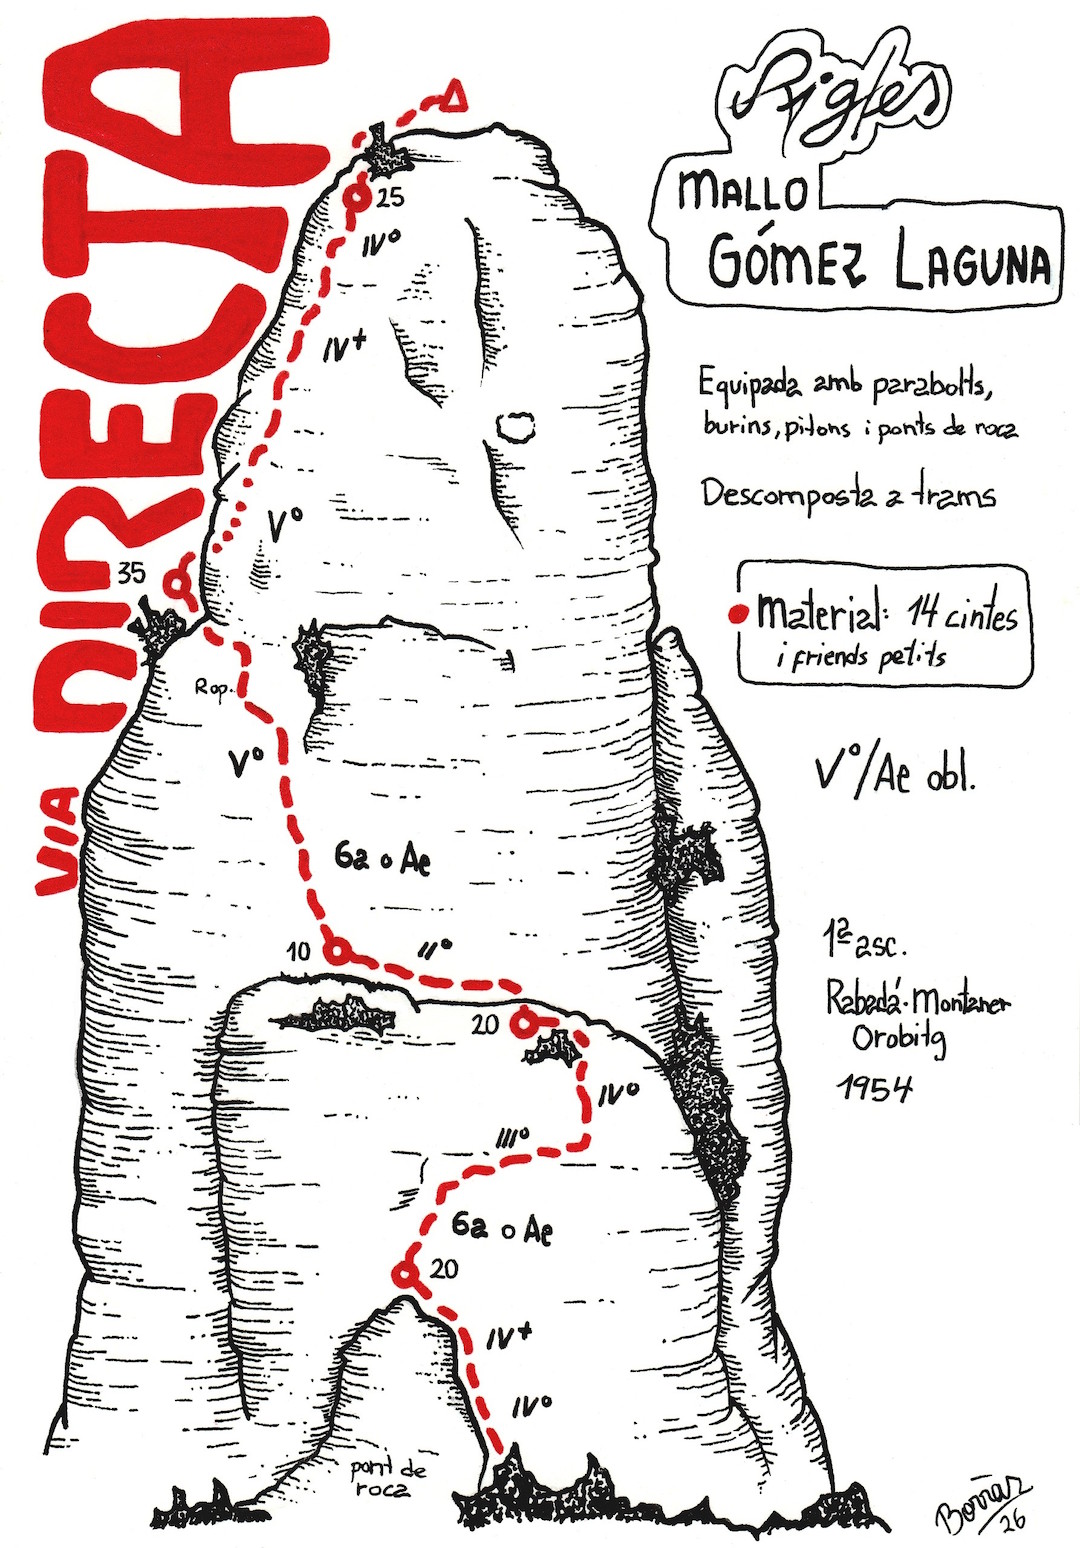 VIA DIRECTA
Rigles
MALLO
GÓMEZ LAGUNA
Equipada amb parabolts,
burins, pitons i ponts de roca
Descomposta a trams
Material: 14 cintes
i friends petits
Vº/Ae obl.
1ª asc.
Rabadá-Montaner
Orobitg
1954
25
IVº
IV+
Vº
35
Rap.
Vº
6a o Ae
10
IIº
20
IVº
IIIº
6a o Ae
20
IV+
IVº
pont de
roca
Borràz
26